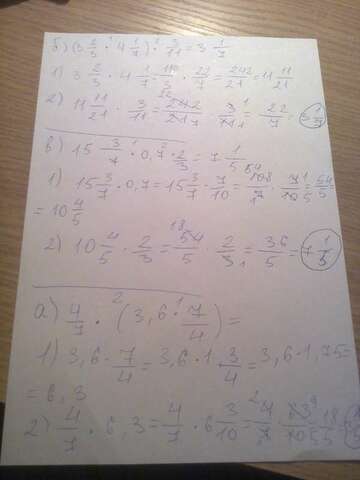 б) (3 2/3 · 4 1/7) · 3/11 = 3 1/7
1) 3 2/3 · 4 1/7 = 11/3 · 22/7 = 242/21 = 11 11/21
2) 11 11/21 · 3/11 = 242/21 · 3/11 = 22/7 = 3 1/7
в) 15 3/7 · 0,7 · 2/3 = 7 1/5
1) 15 3/7 · 0,7 = 15 3/7 · 7/10 = 108/7 · 7/10 = 54/5
= 10 4/5
2) 10 4/5 · 2/3 = 54/5 · 2/3 = 36/5 = 7 1/5
а) 4/7 · (3,6 · 1 7/4) =
1) 3,6 · 7/4 = 3,6 · 1 3/4 = 3,6 · 1,75 =
= 6,3
2) 4/7 · 6,3 = 4/7 · 6 3/10 = 4/7 · 63/10 = 18/5